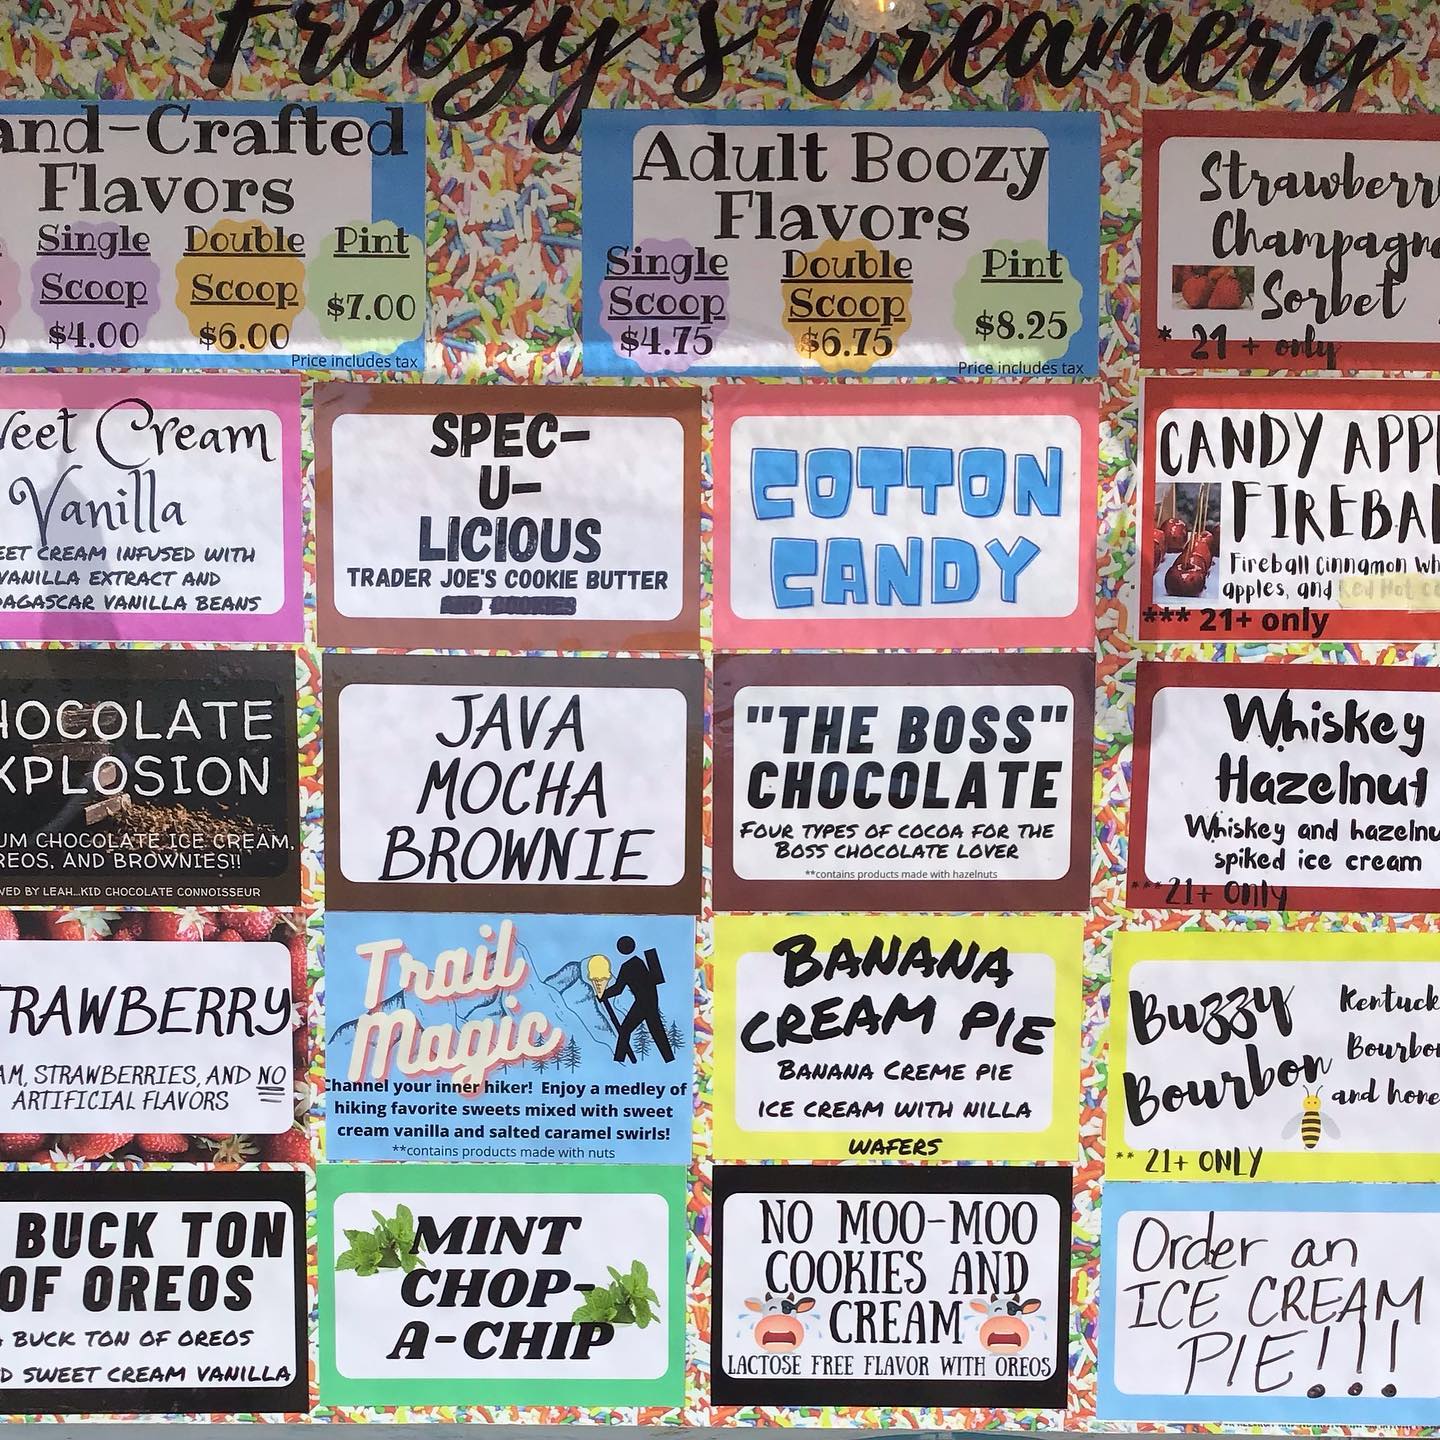 Freezy's Creamery
and-Crafted
Flavors
Single
Scoop
$4.00
Double
Scoop
$6.00
Pint
$7.00
Price includes tax
Adult Boozy
Flavors
Single
Scoop
$4.75
Double
Scoop
$6.75
Pint
$8.25
Price includes tax
Strawberr
Champagn
Sorbet
* 21 + only
eet Cream
Vanilla
EET CREAM INFUSED WITH
VANILLA EXTRACT AND
DAGASCAR VANILLA BEANS
SPEC-
U-
LICIOUS
TRADER JOE'S COOKIE BUTTER
COTTON
CANDY
CANDY APP
FIREBA
Fireball Cinnamon Wh
apples, and Red Hot
*** 21+ only
HOCOLATE
XPLOSION
UM CHOCOLATE ICE CREAM,
REOS, AND BROWNIES!!
VED BY LEAH...KID CHOCOLATE CONNOISSEUR
JAVA
MOCHA
BROWNIE
"THE BOSS"
CHOCOLATE
FOUR TYPES OF COCOA FOR THE
BOSS CHOCOLATE LOVER
**contains products made with hazelnuts
Whiskey
Hazelnut
Whiskey and hazelnu
spiked ice cream
***21+ only
TRAWBERRY
AM, STRAWBERRIES, AND NO
ARTIFICIAL FLAVORS
Trail
Magic
Channel your inner hiker! Enjoy a medley of
hiking favorite sweets mixed with sweet
cream vanilla and salted caramel swirls!
**contains products made with nuts
BANANA
CREAM PIE
BANANA CREME PIE
ICE CREAM WITH NILLA
WAFERS
Buzzy
Bourbon
Kentuck
Bourbo
and hone
** 21+ ONLY
BUCK TON
OF OREOS
A BUCK TON OF OREOS
D SWEET CREAM VANILLA
MINT
CHOP-
A-CHIP
NO MOO-MOO
COOKIES AND
CREAM
LACTOSE FREE FLAVOR WITH OREOS
Order an
ICE CREAM
PIE!!!